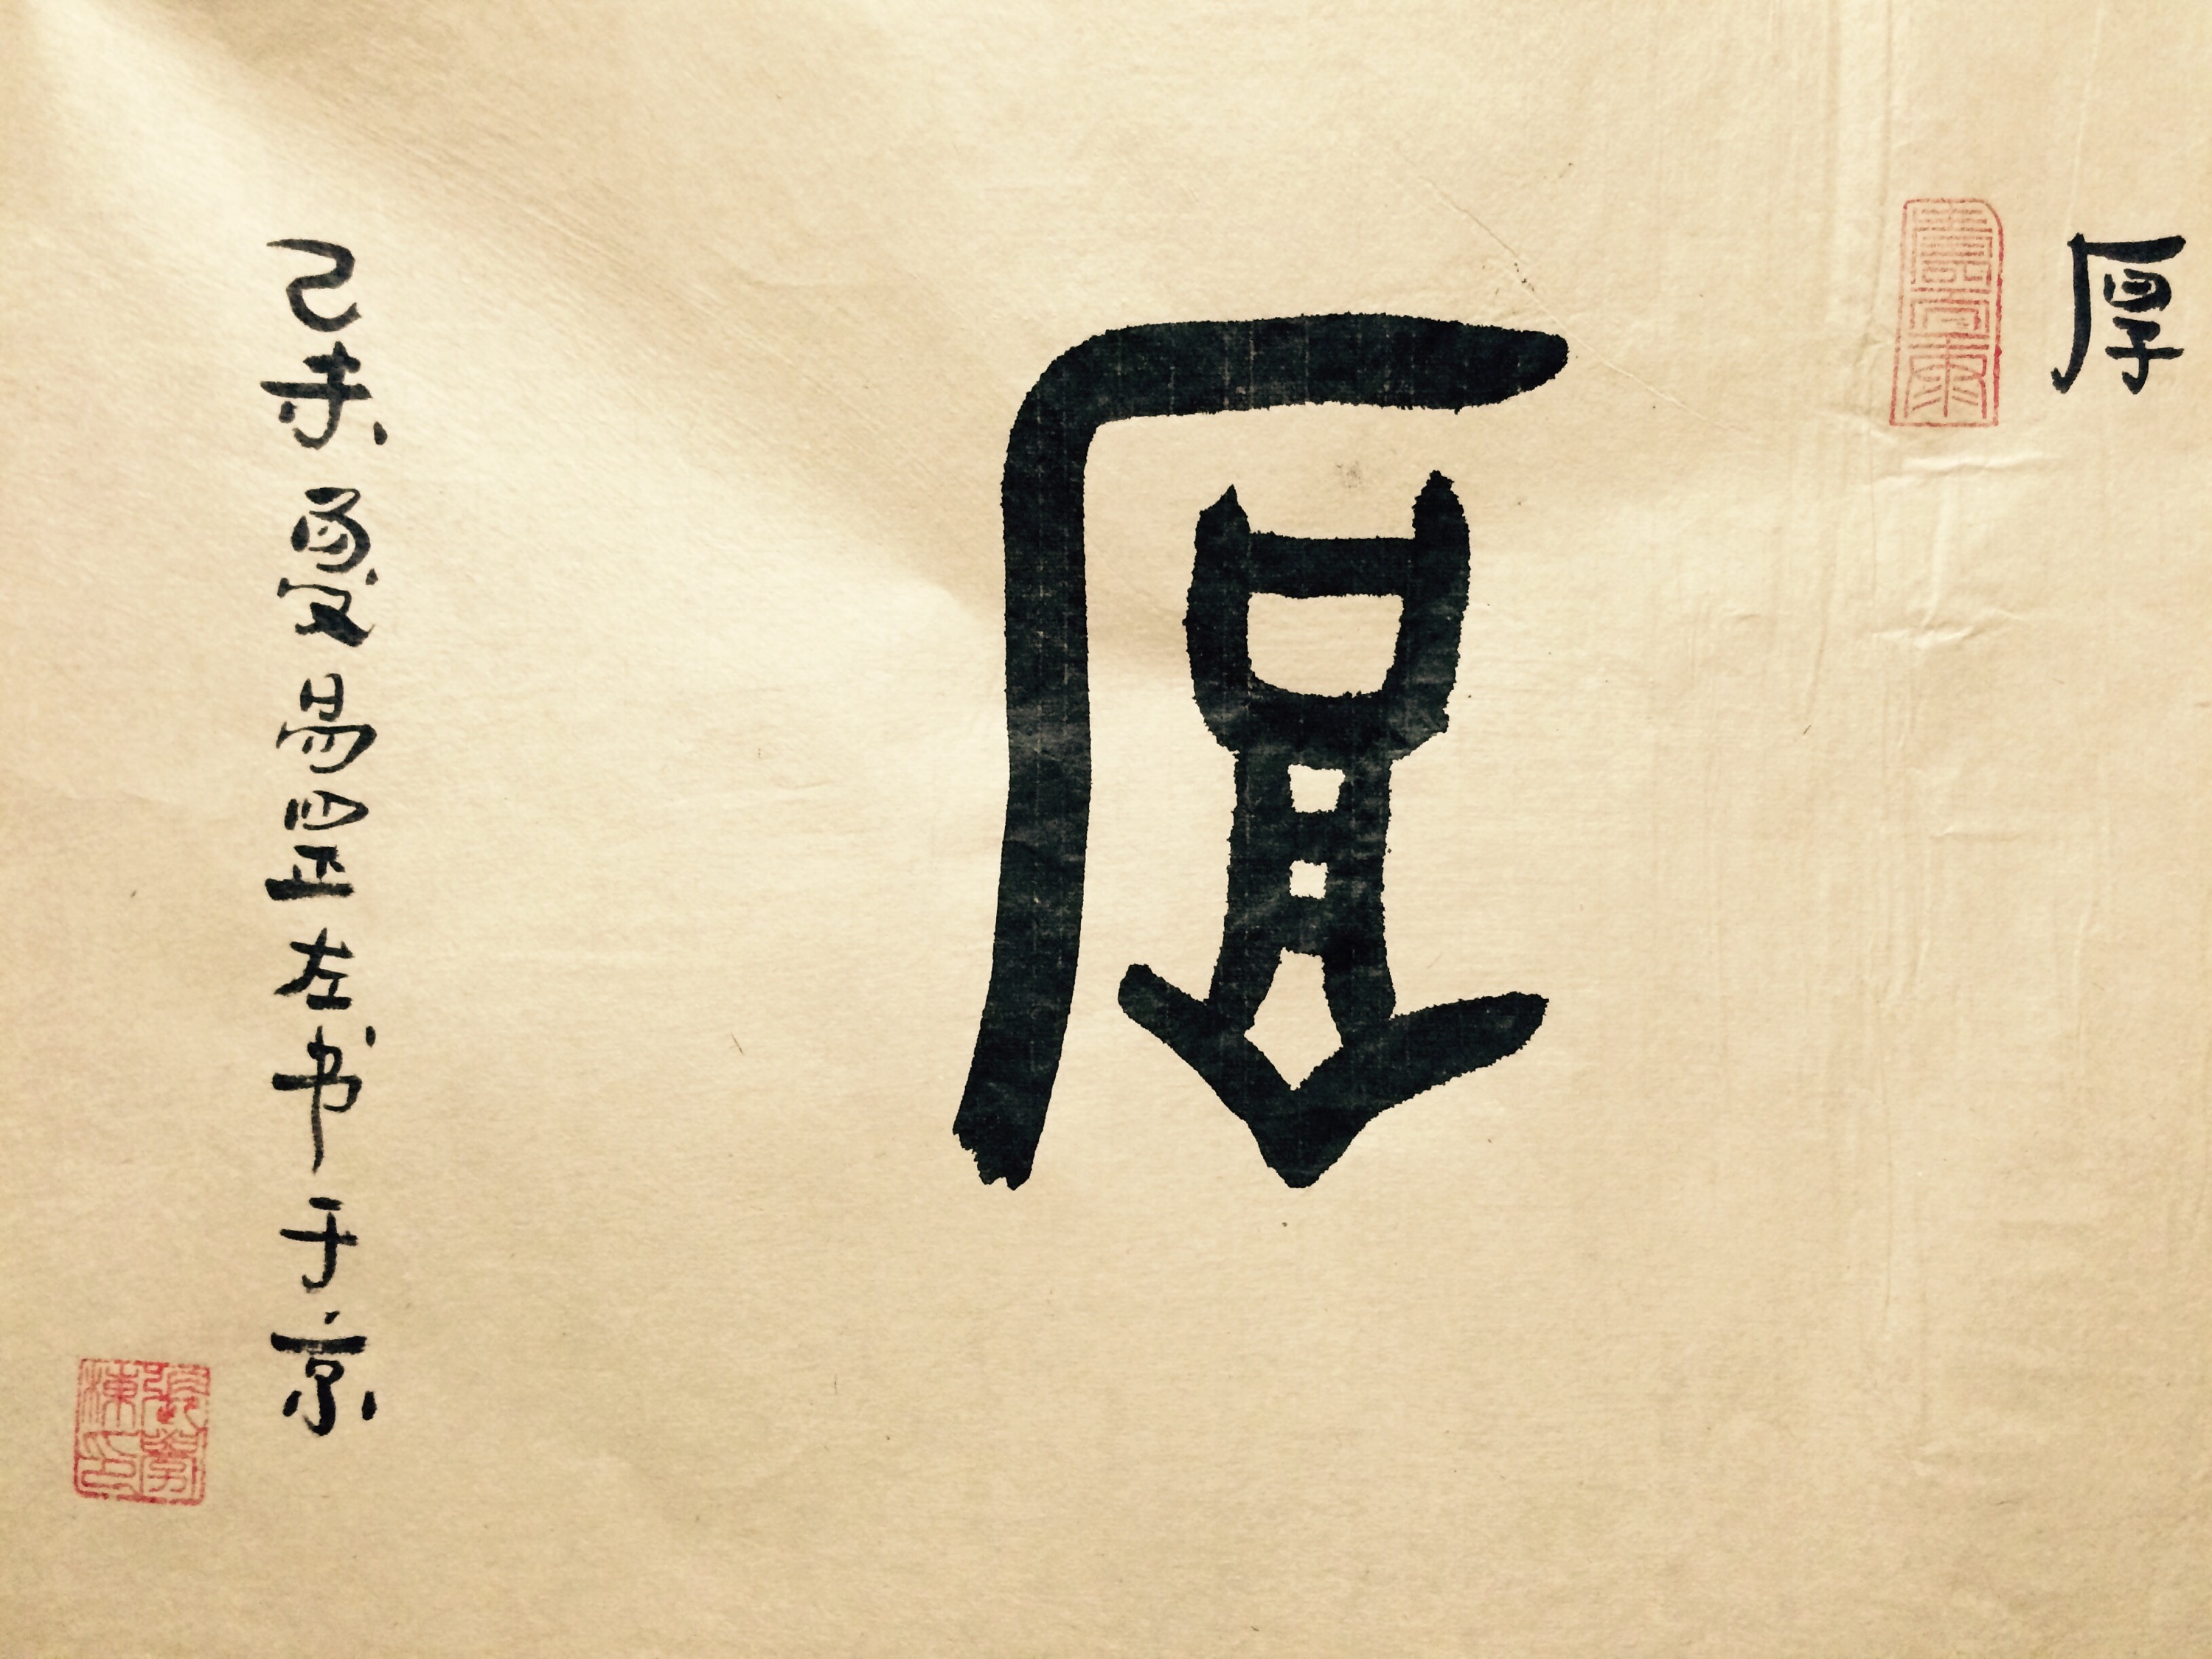 厚
厚
己未夏易罡左书于京